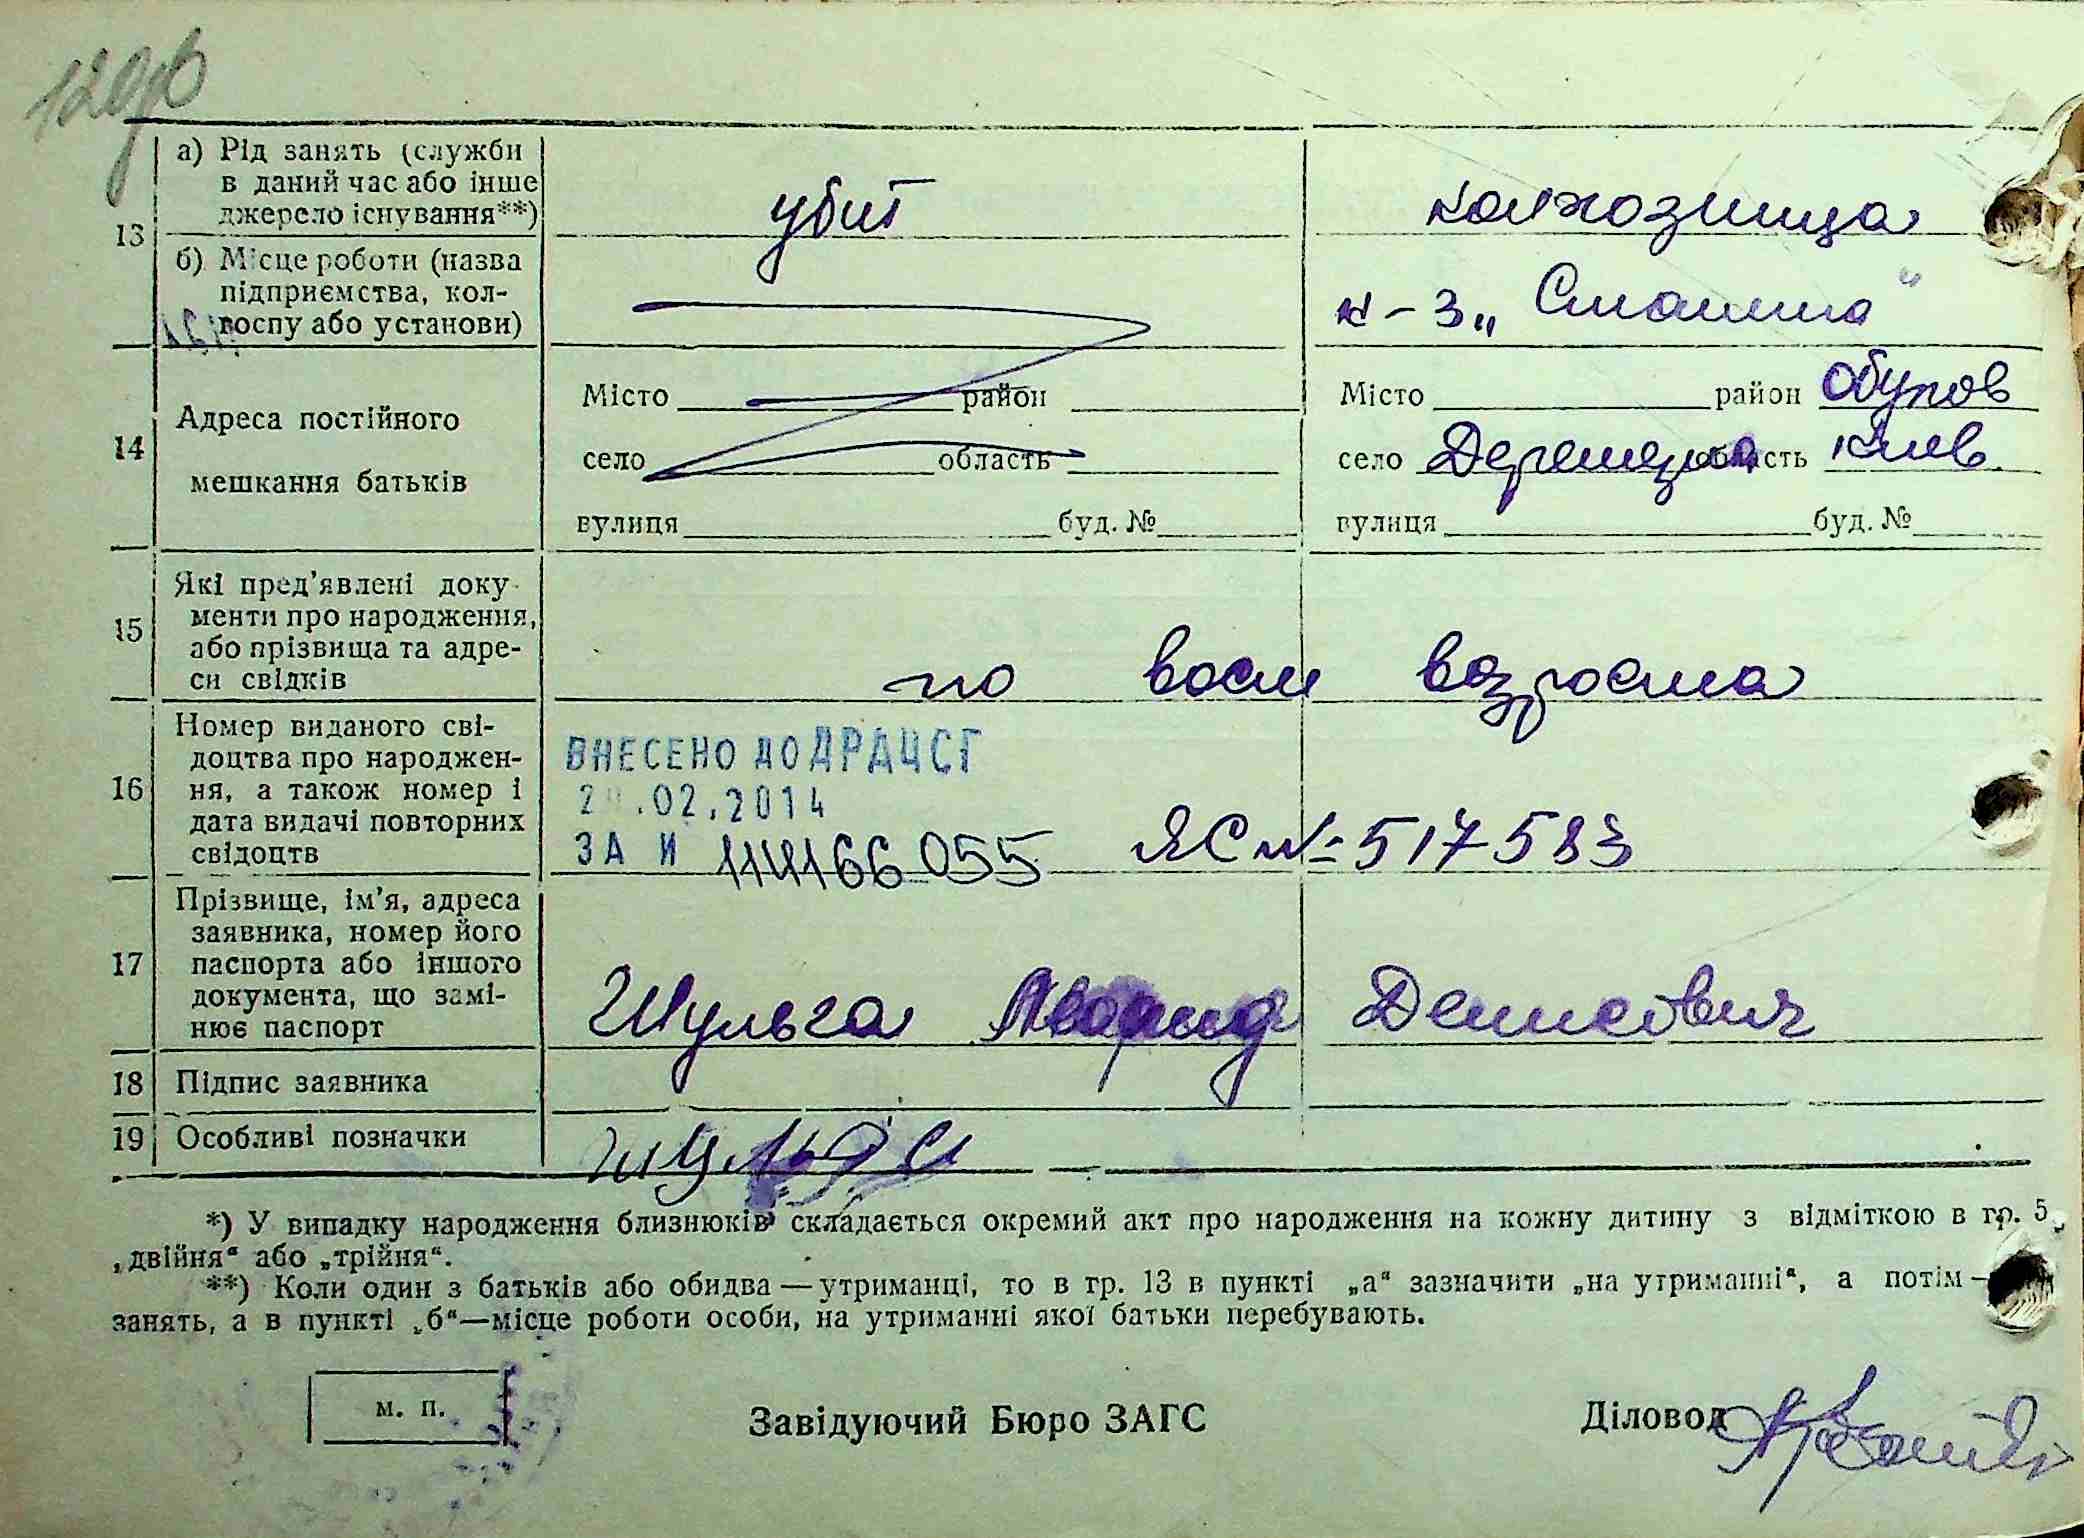 13
а) Рід занять (служби
в даний час або інше
джерело існування**)
убит
колхозница
б) Місце роботи (назва
підприємства, кол-
госпу або установи)
к-з „Сталина"
14
Адреса постійного
мешкання батьків
Місто район
село область
вулиця буд. №
Місто район Обухов
село область Киев
вулиця буд. №
15
Які пред'явлені доку-
менти про народження,
або прізвища та адре-
си свідків
по возроста
16
Номер виданого сві-
доцтва про народжен-
ня, а також номер і
дата видачі повторних
свідоцтв
ВНЕСЕНО ДО ДРАЦСГ
.02.2014
ЗА И
ЯС № 517583
17
Прізвище, ім'я, адреса
заявника, номер його
паспорта або іншого
документа, що замі-
нює паспорт
Шульга Денисович
18
Підпис заявника
19
Особливі позначки
Шульга
*) У випадку народження близнюків складається окремий акт про народження на кожну дитину з відміткою в гр. 5
„двійня“ або „трійня“.
**) Коли один з батьків або обидва — утриманці, то в гр. 13 в пункті „а“ зазначити „на утриманні“, а потім —
занять, а в пункті „б“ — місце роботи особи, на утриманні якої батьки перебувають.
м. п.
Завідуючий Бюро ЗАГС
Діловод